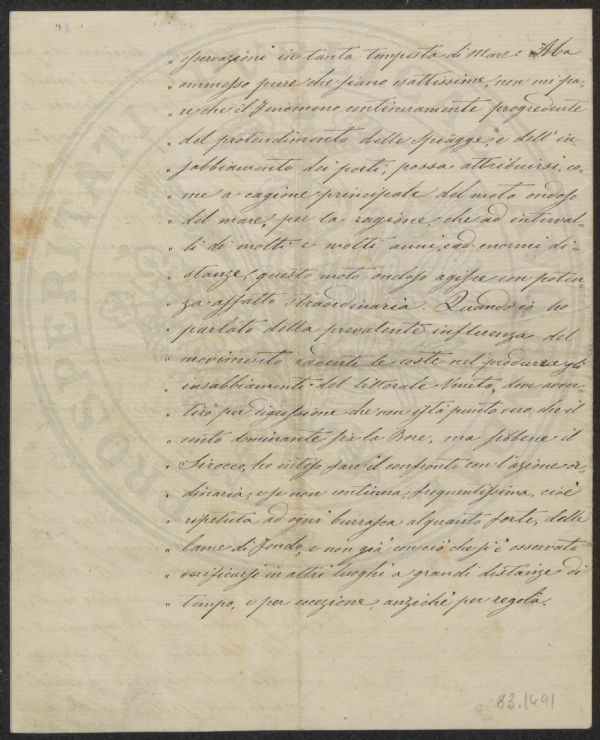 " servazioni in tanta tempesta di mare. " Ma
" ammesso pure che siano esattissime, non mi pa-
" re che il fenomeno continuamente progrediente
" del protendimento delle spiagge, e dell'in-
" sabbiamento dei porti, possa attribuirsi, co-
" me a cagione principale del moto ondoso
" del mare, per la ragione, che ad interval-
" li di molti e molti anni, e ad enormi di-
" stanze, questo moto ondoso agisce con poten-
" za affatto straordinaria. Quando io ho
" parlato della prevalente influenza del
" movimento radente le coste nel produrre gli
" insabbiamenti del littorale Veneto, dove avver-
" tirò per digressione che non istà punto vero che il
" vento dominante sia la Bora, ma sibbene il
" Sirocco, ho inteso fare il confronto con l'azione or-
" dinaria, e se non continua, frequentissima, cioè
" ripetuta ad ogni burrasca alquanto forte, delle
" lame di fondo, e non già con ciò che si è osservato
" verificarsi in altri luoghi a grandi distanze di
" tempo, e per eccezione, anziché per regola.
PROSPERITATI
83.1491